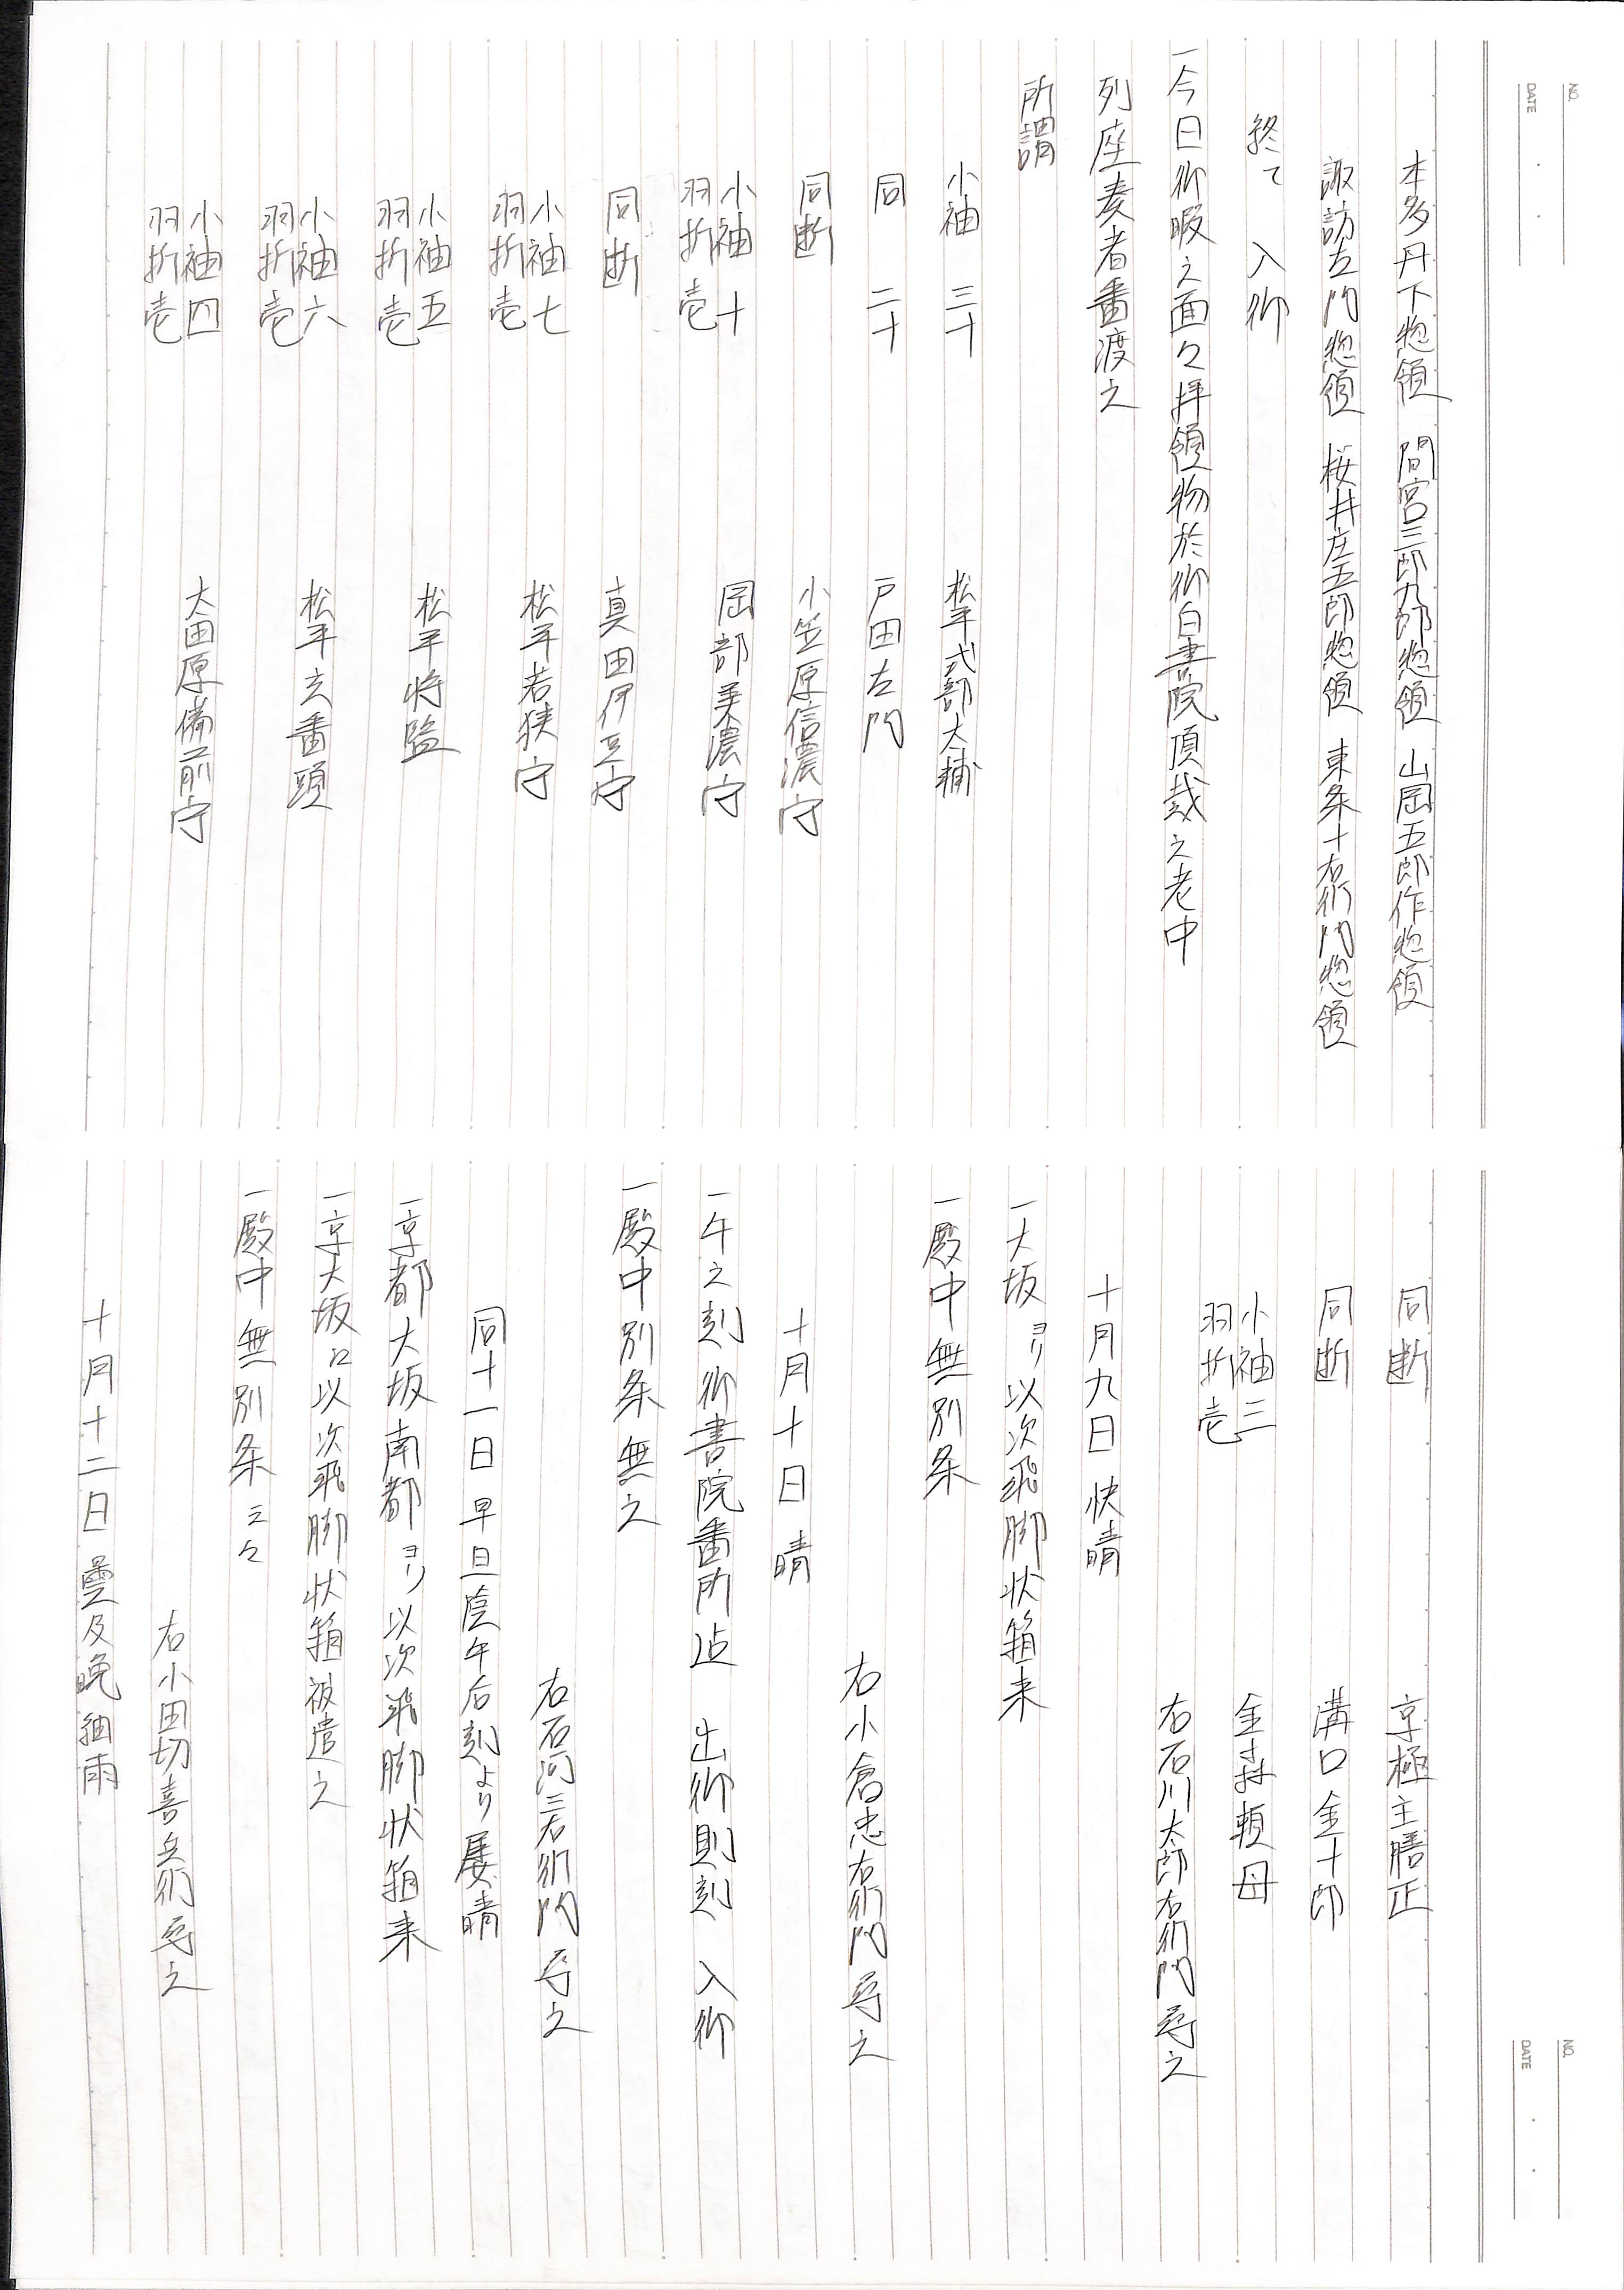 NO.
DATE
本多丹下惣領 間宮三郎九郎惣領 山岡五郎作惣領
諏訪左門惣領 桜井庄五郎惣領 東条十右衛門惣領
終て 入御
一今日御暇之面々拝領物於御白書院頂戴之老中
列座奏者番渡之
所謂
小袖 三十 松平式部大輔
同 二十 戸田左門
同断 小笠原信濃守
小袖 十
羽折壱 岡部美濃守
同断 真田伊豆守
小袖七
羽折壱 松平若狭守
小袖五
羽折壱 松平将監
小袖六
羽折壱 松平玄番頭
小袖四
羽折壱 大田原備前守
同断 京極主膳正
同断 溝口金十郎
小袖三
羽折壱 金森頼母
右石川太郎右衛門尋之
十月九日 快晴
一大坂ヨリ以次飛脚状箱来
一殿中無別条
右小倉忠右衛門尋之
十月十日 晴
一午之刻御書院番所迠 出御則刻 入御
一殿中別条無之
右石河三右衛門尋之
同十一日 早旦陰午后刻より屡晴
一京都大坂南都ヨリ以次飛脚状箱来
一京大坂江以次飛脚状箱被遣之
一殿中無別条云々
右小田切喜兵衛尋之
十月十二日 曇及晩細雨
NO.
DATE